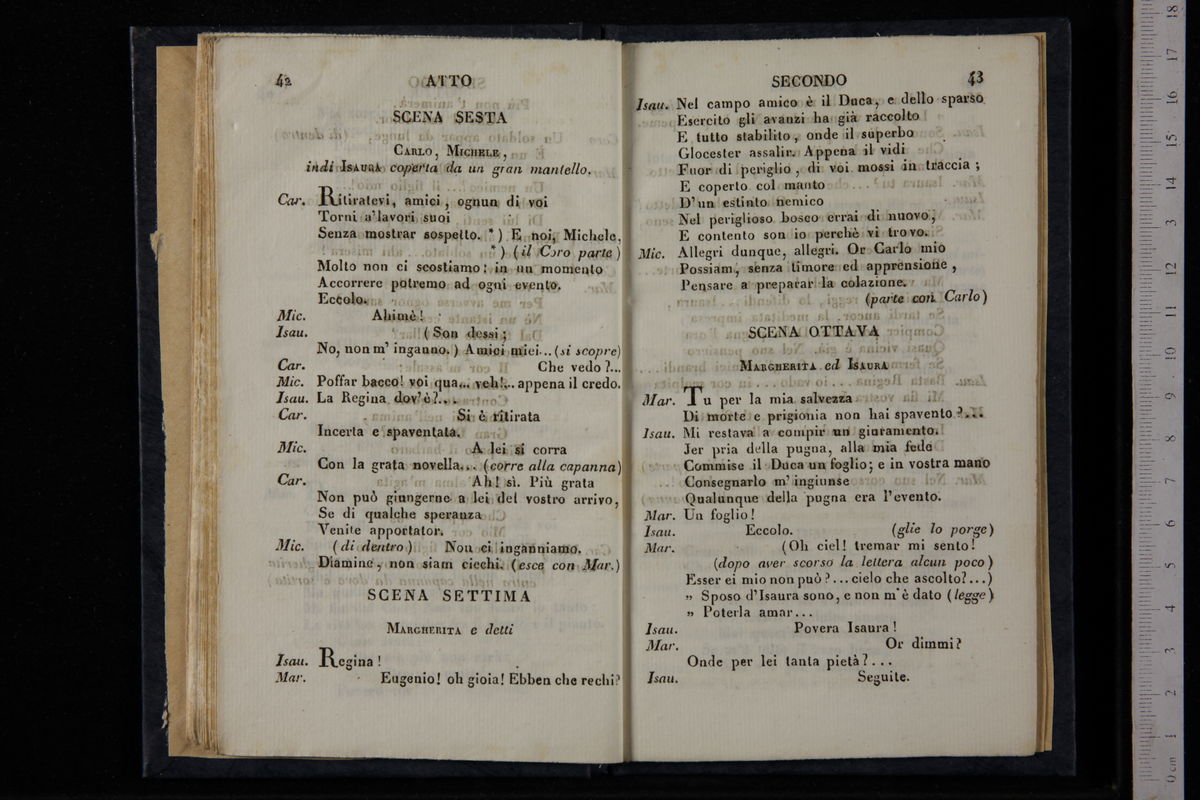 42 ATTO
SCENA SESTA
CARLO, MICHELE,
indi ISAURA coperta da un gran mantello.
Car. Ritiratevi, amici, ognun di voi
Torni a'lavori suoi
Senza mostrar sospetto. *) E noi, Michele,
*) (il Coro parte)
Molto non ci scostiamo: in un momento
Accorrere potremo ad ogni evento.
Eccolo.
Mic. Ahimè!
Isau. (Son dessi;
No, non m'inganno.) Amici miei... (si scopre)
Car. Che vedo?...
Mic. Poffar bacco! voi qua... veh!... appena il credo.
Isau. La Regina dov'è?...
Car. Si è ritirata
Incerta e spaventata.
Mic. A lei si corra
Con la grata novella... (corre alla capanna)
Car. Ah! sì. Più grata
Non può giungerne a lei del vostro arrivo,
Se di qualche speranza
Venite apportator.
Mic. (di dentro) Non ci inganniamo.
Diamine, non siam ciechi. (esce con Mar.)
SCENA SETTIMA
MARGHERITA e detti
Isau. Regina!
Mar. Eugenio! oh gioia! Ebben che rechi?
SECONDO 43
Isau. Nel campo amico è il Duca, e dello sparso
Esercito gli avanzi ha già raccolto
E tutto stabilito, onde il superbo
Glocester assalir. Appena il vidi
Fuor di periglio, di voi mossi in traccia;
E coperto col manto
D'un estinto nemico
Nel periglioso bosco errai di nuovo,
E contento son io perchè vi trovo.
Mic. Allegri dunque, allegri. Or Carlo mio
Possiam, senza timore ed apprensione,
Pensare a preparar la colazione.
(parte con Carlo)
SCENA OTTAVA
MARGHERITA ed ISAURA
Mar. Tu per la mia salvezza
Di morte e prigionia non hai spavento?...
Isau. Mi restava a compir un giuramento.
Jer pria della pugna, alla mia fede
Commise il Duca un foglio; e in vostra mano
Consegnarlo m'ingiunse
Qualunque della pugna era l'evento.
Mar. Un foglio!
Isau. Eccolo. (glie lo porge)
Mar. (Oh ciel! tremar mi sento!
(dopo aver scorso la lettera alcun poco)
Esser ei mio non può?... cielo che ascolto?...)
" Sposo d'Isaura sono, e non m'è dato (legge)
" Poterla amar...
Isau. Povera Isaura!
Mar. Or dimmi?
Onde per lei tanta pietà?...
Isau. Seguite.
0 cm 1 2 3 4 5 6 7 8 9 10 11 12 13 14 15 16 17 18